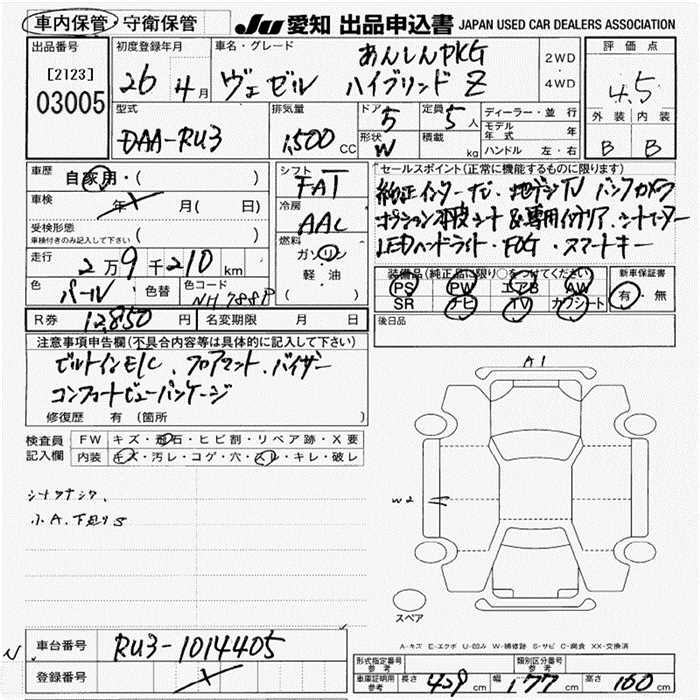 車内保管・守衛保管
JU 愛知 出品申込書 JAPAN USED CAR DEALERS ASSOCIATION
出品番号 初度登録年月 車名・グレード あんしんPKG 2WD・4WD 評価点
[2123]
03005
26 4月 ヴェゼル ハイブリッド Z 4.5
型式 排気量 ドア 5 定員 5人 ディーラー・並行 外装 内装
DAA-RU3 1,500 CC 形状 W 積載 kg モデル年式 年 ハンドル 左・右 B B
車歴 自家用・( ) シフト FAT セールスポイント(正常に機能するものに限ります)
車検 年 月( 日) 冷房 AAC 純正インターナビ・地デジTV バックカメラ
受検形態 車検付きのみ記入して下さい ( ) 燃料 ガソリン 軽・油 ( )
オプション本皮シート&専用インテリア・シートヒーター
LEDヘッドライト・FOG・スマートキー
走行 2万9千210km
装備品(純正品に限り○をつけてください) 新車保証書
色 パール 色替 色コード NH788P
PS PW エアB AW 有・無
SR ナビ TV カワシート
R券 12,850円 名変期限 月 日 後日品
注意事項申告欄(不具合内容等は具体的に記入して下さい)
ビルトインETC、フロアマット、バイザー
コンフォートビューパッケージ
修復歴 有 (箇所 )
検査員記入欄 FW キズ・飛石・ヒビ割・リペア跡・X要
内装 キズ・汚レ・コゲ・穴・スレ・キレ・破レ
小A、下廻りS
A1
W2
スペア
A-キズ E-エクボ U-凹み W-補修跡 S-サビ C-腐食 XX-交換済
車台番号 RU3-1014405
登録番号
形式指定番号 参考 類別区分番号 参考
車庫証明用 参考 長さ 429 cm 幅 177 cm 高さ 160 cm